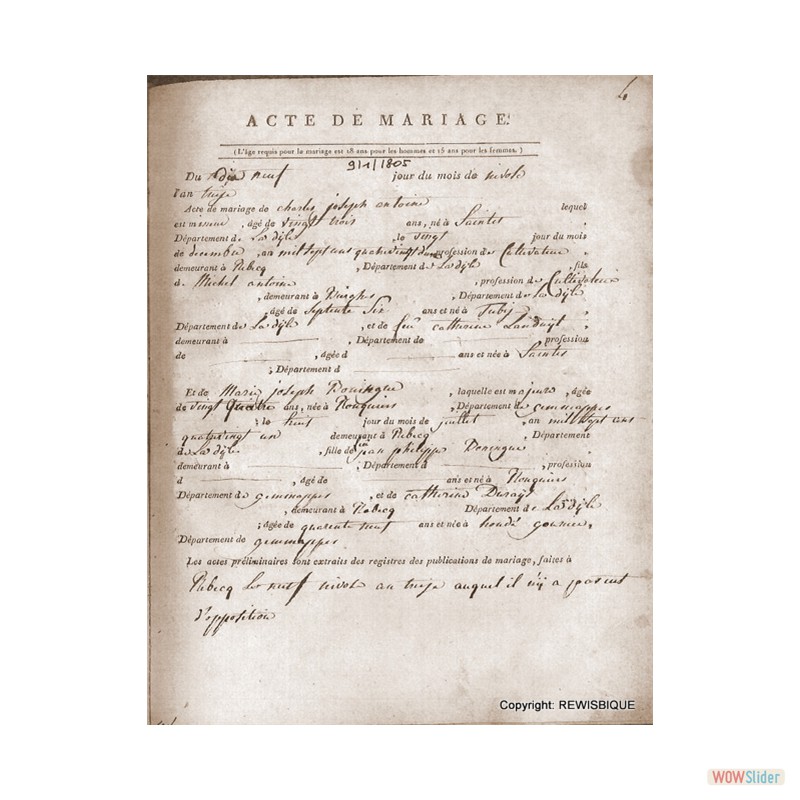 ACTE DE MARIAGE.
(L'âge requis pour le mariage est 18 ans pour les hommes et 15 ans pour les femmes.)
9/1/1805
Du dix neuf jour du mois de nivose
l'an treize
Acte de mariage de charles joseph antoine lequel
est mineur, âgé de vingt trois ans, né à Saintes
Département de La dijle, le vingt jour du mois
de decembre, an mil sept cens quatrevingt profession de Cultivateur
demeurant à Rebecq, Département de La dijle, fils
de Michel antoine, profession de Cultivateur
, demeurant à Département de La dijle
, âgé de septente Six ans et né à Tubize
Département de La dijle, et de feu catherine
demeurant à Département de profession
de , âgée d ans et née à Saintes
; Département d
Et de Marie joseph laquelle est majeure, âgée
de vingt Quatre ans, née à Département de gemmappes
; le huit jour du mois de juillet, an mil sept cens
quatrevingt un demeurant à Rebecq, Département
de La dijle, fille de jean philippe
demeurant à ; Département d , profession
d , âgé de ans et né à
Département de gemmappes, et de catherine
, demeurant à Rebecq Département de La dijle
; âgée de quarente neuf ans et née à
Département de gemmappes
Les actes préliminaires sont extraits des registres des publications de mariage, faites à
Rebecq le neuf nivose an treize auquel il n'y a pas eut
d'opposition
Copyright: REWISBIQUE
WOWSlider